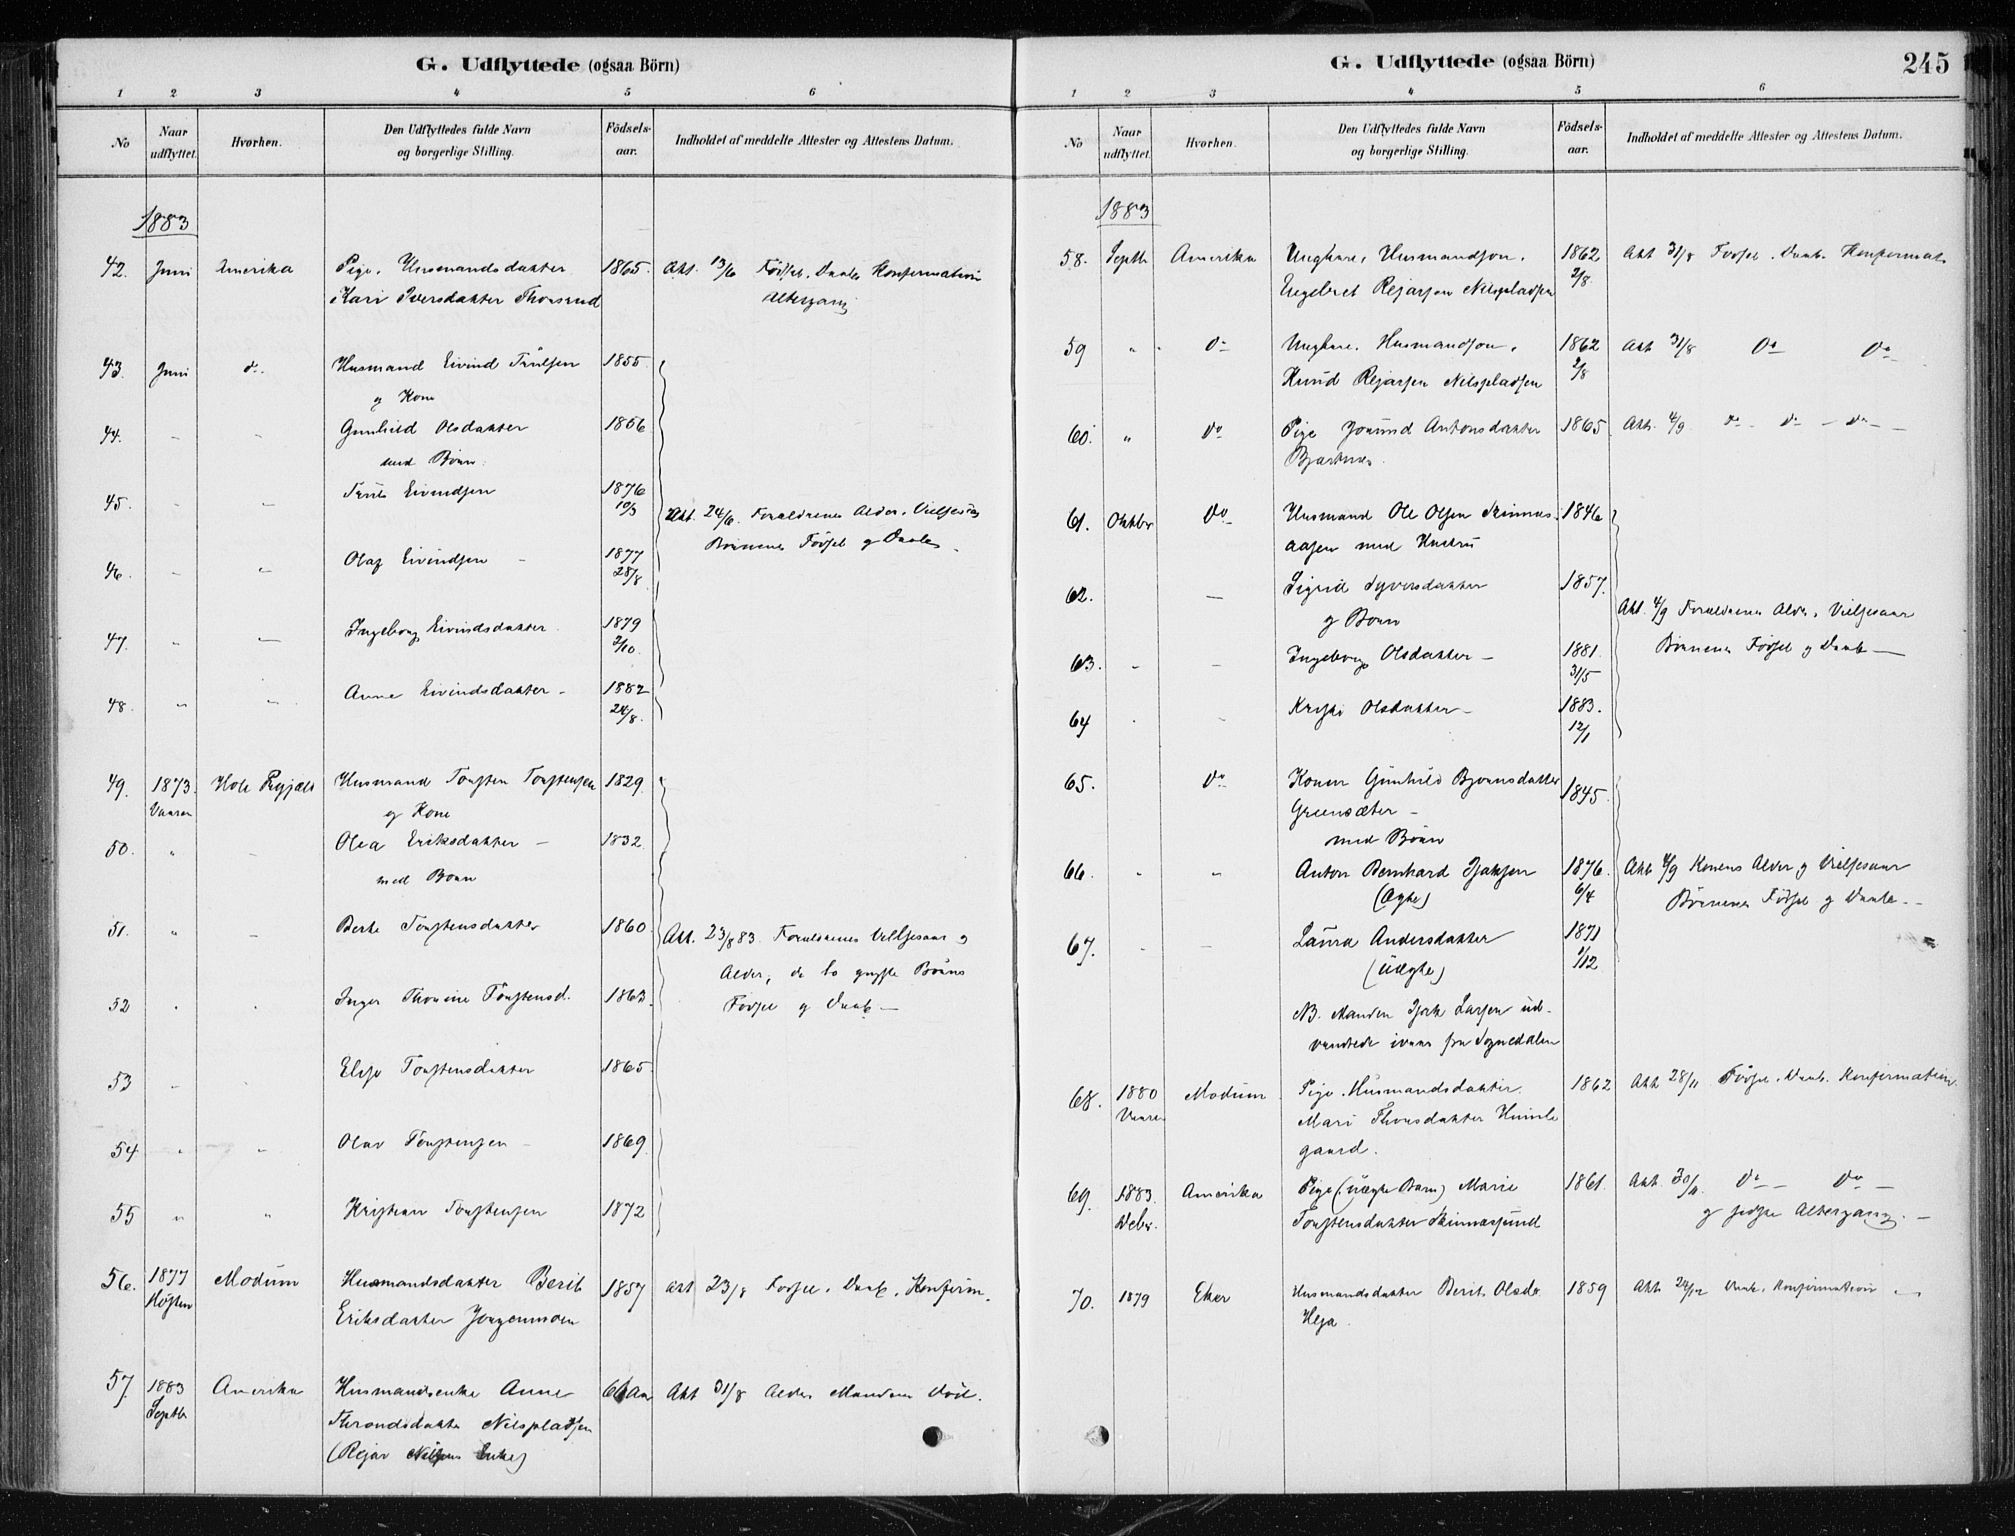 G. Udflyttede (ogsaa Börn)
1 2 3 4 5 6
No
Naar udflyttet.
Hvorhen.
Den Udflyttedes fulde Navn og borgerlige Stilling.
Födsels-aar.
Indholdet af meddelte Attester og Attestens Datum.
1883
42. Juni Amerika Pige, Husmandsdatter 1865. Att. 13/6 Födsel, Daab Konfirmation
Kari Iversdatter Altergang
43. Juni do. Husmand Eivind Trulsen 1855
og Kone
44. - - Gunhild Olsdatter 1856
med Börn:
45. - - Truls Eivindsen 1876
10/3
Att. 24/6. Forældrenes Alder, Vielsesaar
Börnenes Födsel og Daab.
46. - - Olaf Eivindsen - 1877
28/8
47. - - Ingeborg Eivindsdatter 1879
2/10.
48. " " Anne Eivindsdatter - 1882
24/8.
49. 1873. Hole Prgjæld Husmand Torsten Torstensen 1829.
Vaaren og Kone
50. " - Olea Eriksdatter - 1832
med Börn
51. " - Berte Torstensdatter 1860
Att. 23/8 83. Forældrenes Vielsesaar og
Alder, de to yngste Börns
Födsel og Daab -
52 " " Inger Thorine Torstensd. 1863.
53 " " Elise Torstensdatter 1865
54 " " Olav Torstensen - 1869.
55 " " Kristian Torstensen 1872
56. 1877 Modum Husmandsdatter Berit 1857 att 23/8 Födsel, Daab, Konfirm.
Hösten Eriksdatter
57. 1883 Amerika Husmandsenke Anne 61 Aar Att 31/8 Alder Mandens Död.
Septbr Throndsdatter Nilspladsen
(Rejar Nilsens Enke)
G. Udflyttede (ogsaa Börn) 245
1 2 3 4 5 6
No
Naar udflyttet.
Hvorhen.
Den Udflyttedes fulde Navn og borgerlige Stilling.
Födsels-aar.
Indholdet af meddelte Attester og Attestens Datum.
1883
58. Septbr Amerika Ungkarl, Husmandsön, 1862 Att 31/8 Födsel, Daab. Konfirmat.
Engebret Rejarsen Nilspladsen 2/8.
59 " - Do Ungkarl. Husmandsön, 1862 Att 31/8 Do Do
Knud Rejarsen Nilspladsen 2/8
60. " Do Pige Jorund Antonsdatter 1865 Att. 4/9 do - do - do -
61. Oktbr Do Husmand Ole Olsen 1846
aasen med Hustru
62. - Sigrid Syversdatter 1857.
og Börn
Att. 4/9 Forældrenes Alder, Vielsesaar
Börnenes Födsel og Daab -
63. - - Ingeborg Olsdatter - 1881.
31/5
64 Kristi Olsdatter - 1883.
12/1
65. Do Konen Gunhild Bjornsdatter 1845.
Greensæter -
med Börn
66. " " Anton Bernhard Isaksen 1876.
(ægte) 6/4
Att 4/9 Konens Alder og Vielsesaar
Börnenes Födsel og Daab. -
67. - - Laura Andersdatter 1871
(uægte) 1/12
NB. Manden Isak Larsen ud-
vandrede ivaar fra Sognedalen
68. 1880 Modum Pige. Husmandsdatter 1862 Att 28/11 Födsel, Daab. Konfirmation.
Vaaren Mari Thorsdatter Humle
gaard.
69. 1883. Amerika Pige (uægte Barn) Marie 1861. Att. 30/11. Do - Do -
Decbr. Torstensdatter og sidste Altergang. -
70. 1879 Eker Husmandsdatter Berit Olsdr 1859 Att 24/12 Daab, Konfirmation
Heja.